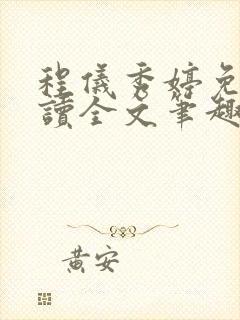 程儀秀婷免
讀全文筆趣
黃安